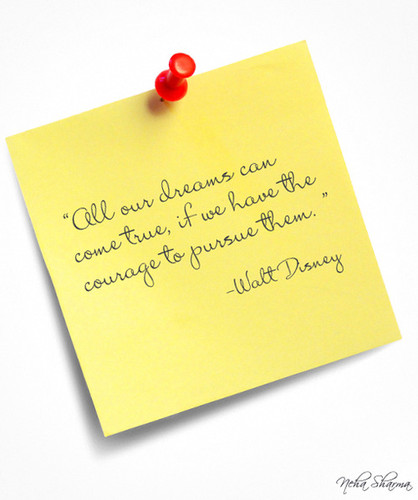 “All our dreams can
come true, if we have the
courage to pursue them.”
-Walt Disney
Neha Sharma